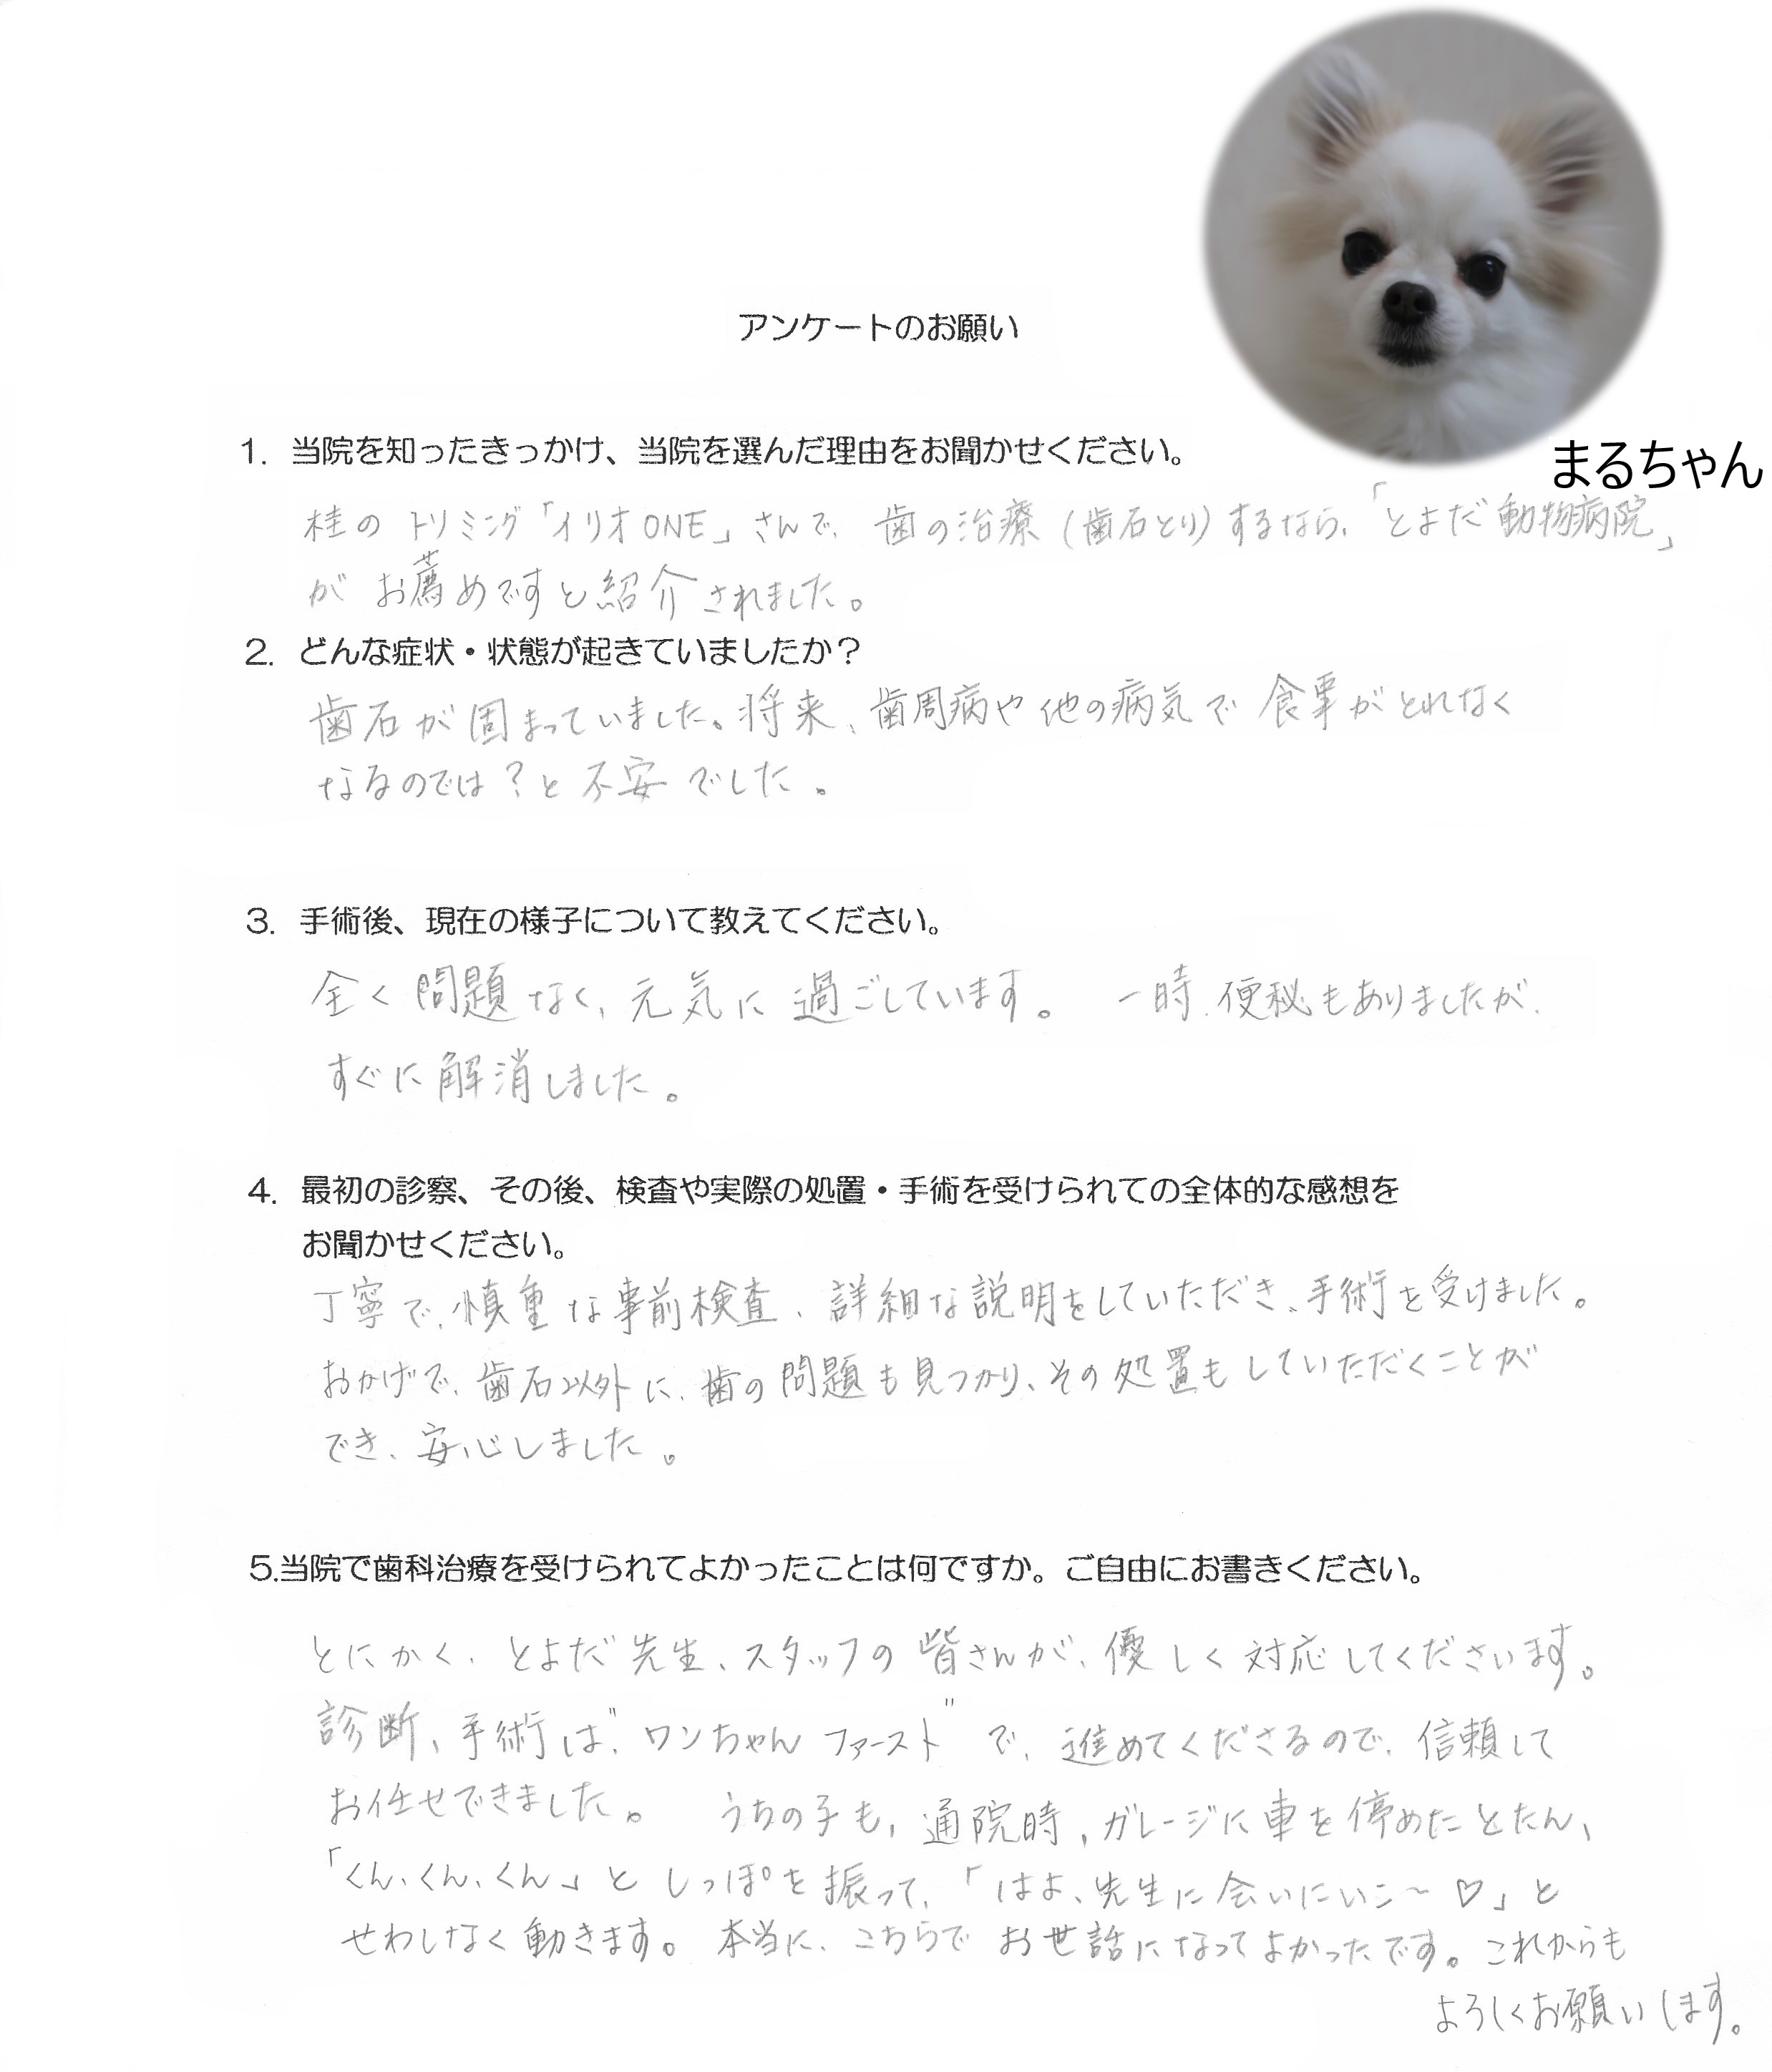 アンケートのお願い
まるちゃん
1. 当院を知ったきっかけ、当院を選んだ理由をお聞かせください。
桂のトリミング「イリオONE」さんで、歯の治療(歯石とり)するなら、「とよだ動物病院」
がお薦めですと紹介されました。
2. どんな症状・状態が起きていましたか？
歯石が固まっていました。将来、歯周病や他の病気で食事がとれなく
なるのでは？と不安でした。
3. 手術後、現在の様子について教えてください。
全く問題なく、元気に過ごしています。 一時、便秘もありましたが、
すぐに解消しました。
4. 最初の診察、その後、検査や実際の処置・手術を受けられての全体的な感想を
お聞かせください。
丁寧で、慎重な事前検査、詳細な説明をしていただき、手術を受けました。
おかげで、歯石以外に、歯の問題も見つかり、その処置もしていただくことが
でき、安心しました。
5.当院で歯科治療を受けられてよかったことは何ですか。ご自由にお書きください。
とにかく、とよだ先生、スタッフの皆さんが、優しく対応してくださいます。
診断、手術は、"ワンちゃんファースト"で、進めてくださるので、信頼して
お任せできました。 うちの子も、通院時、ガレージに車を停めたとたん、
「くん、くん、くん」としっぽを振って、「はよ、先生に会いにいこ～♡」と
せわしなく動きます。本当に、こちらでお世話になってよかったです。これからも
よろしくお願いします。